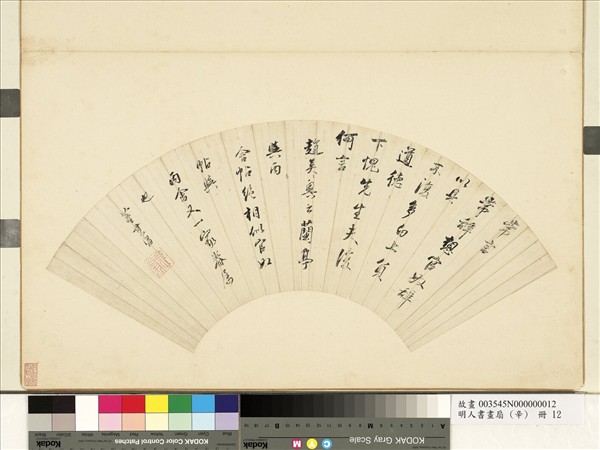 常言
常辭想官奴辭
以具
不復多白上負
道德
下愧先生夫復
何言
趙吳興云蘭亭
與丙
舍帖絕相似官奴
帖與
丙舍又一家眷屬
也 董其昌
故畫 003545N000000012
明人書畫扇（辛） 冊 12
KODAK Color Control Patches
KODAK Gray Scale
Kodak
C M Y